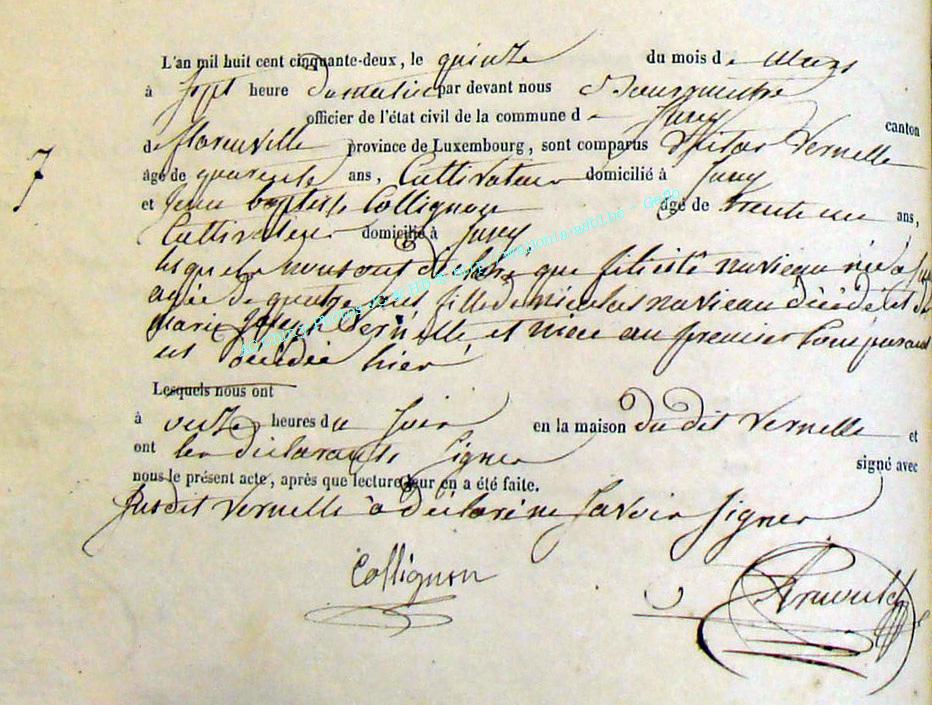 L'an mil huit cent cinquante-deux, le quinze du mois de Mars
à sept heure du matin par devant nous Bourgmestre
officier de l'état civil de la commune de Suxy canton
de florenville province de Luxembourg, sont comparus Vernelle
âgé de quarante ans, Cultivateur domicilié à Suxy
et Jean baptiste Collignon âgé de trente un ans,
Cultivateur domicilié à Suxy
lesquels nous ont déclaré que félicité naviaux née à
agée de quatre ans, fille de nicolas naviaux décédé et de
marie joseph Vernelle et niece au premier Comparant
est décédée hier
Lesquels nous ont
à onze heures du soir en la maison du dit Vernelle et
ont les déclarants signer signé avec
nous le présent acte, après que lecture leur en a été faite.
susdit Vernelle à déclaré ne savoir signer
Collignon Arnould
7